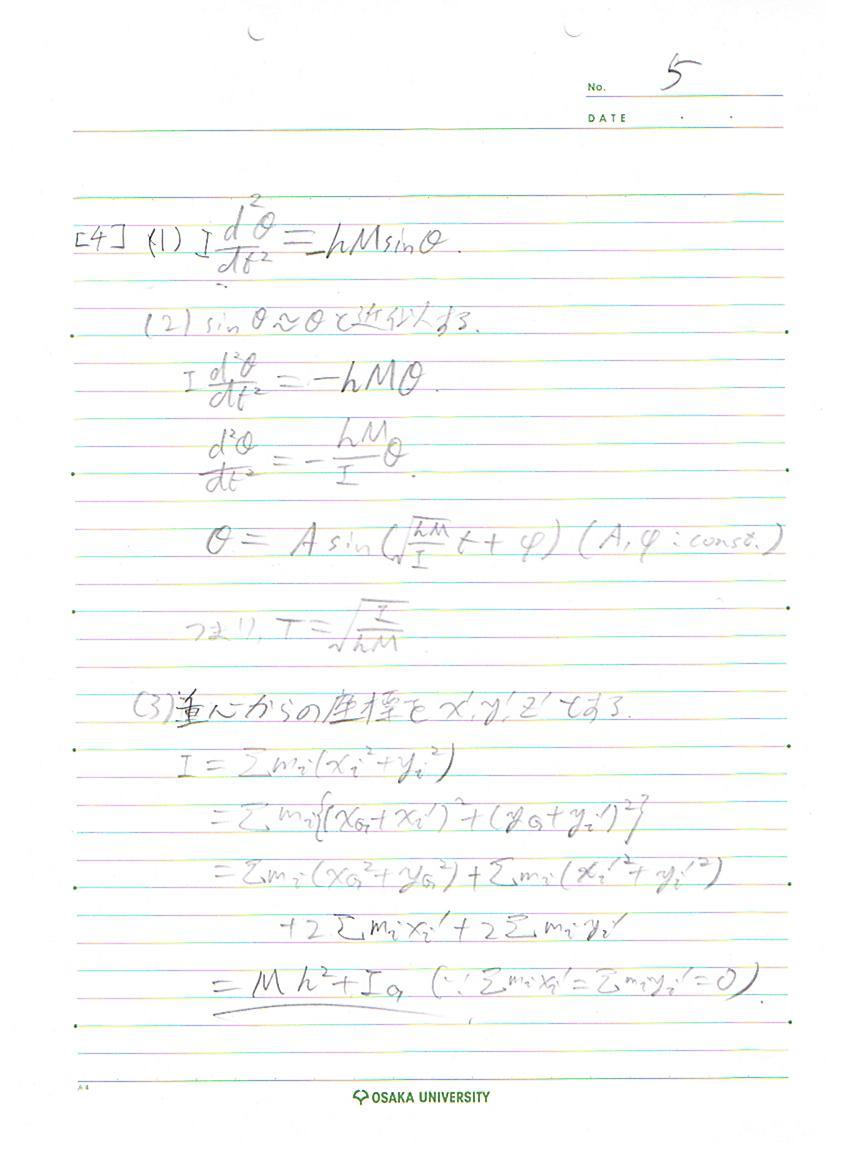 No. 5
DATE . .
[4] (1) I d²θ/dt² = -hM sinθ.
(2) sinθ≈θと近似する.
I d²θ/dt² = -hMθ.
d²θ/dt² = - hM/I θ.
θ = A sin(√(hM/I) t + φ) (A, φ : const.)
つまり, T = √(I/hM)
(3) 重心からの座標をx', y', z'とする.
I = Σmᵢ(xᵢ²+yᵢ²)
= Σmᵢ{(x_G+xᵢ')²+(y_G+yᵢ')²}
= Σmᵢ(x_G²+y_G²)+Σmᵢ(xᵢ'²+yᵢ'²)
+2Σmᵢxᵢ'+2Σmᵢyᵢ'
= Mh²+I_G (∵ Σmᵢxᵢ'=Σmᵢyᵢ'=0).
A4
OSAKA UNIVERSITY